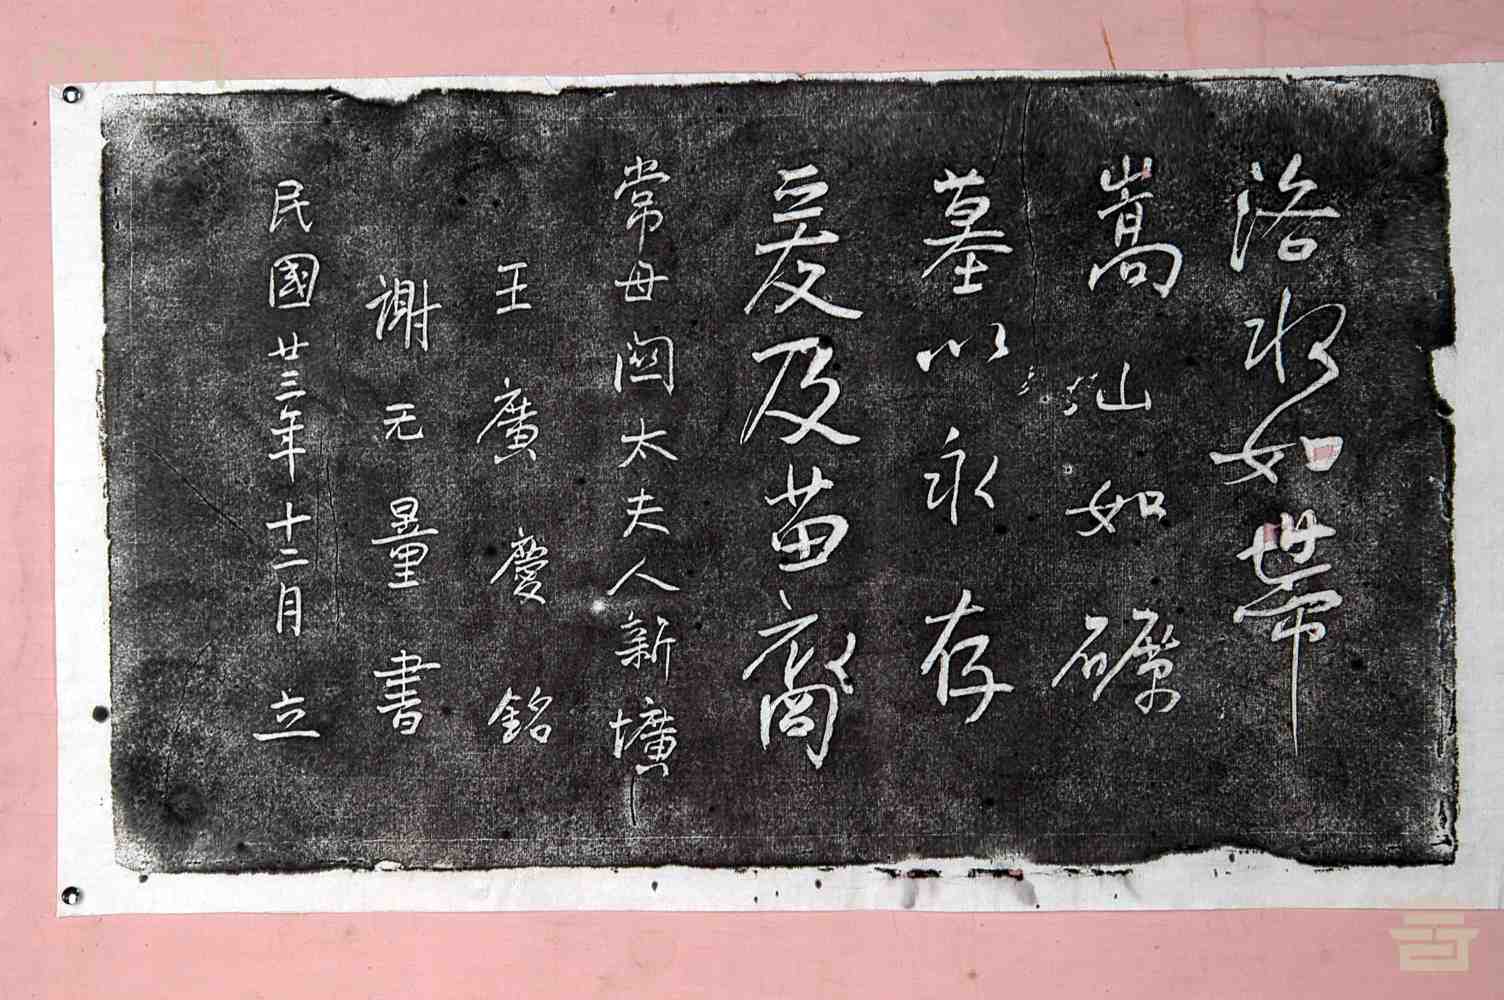 洛水如帶
嵩山如礪
墓以永存
爰及苗裔
常母閻太夫人新壙
王廣慶銘
謝无量書
民國廿三年十二月立